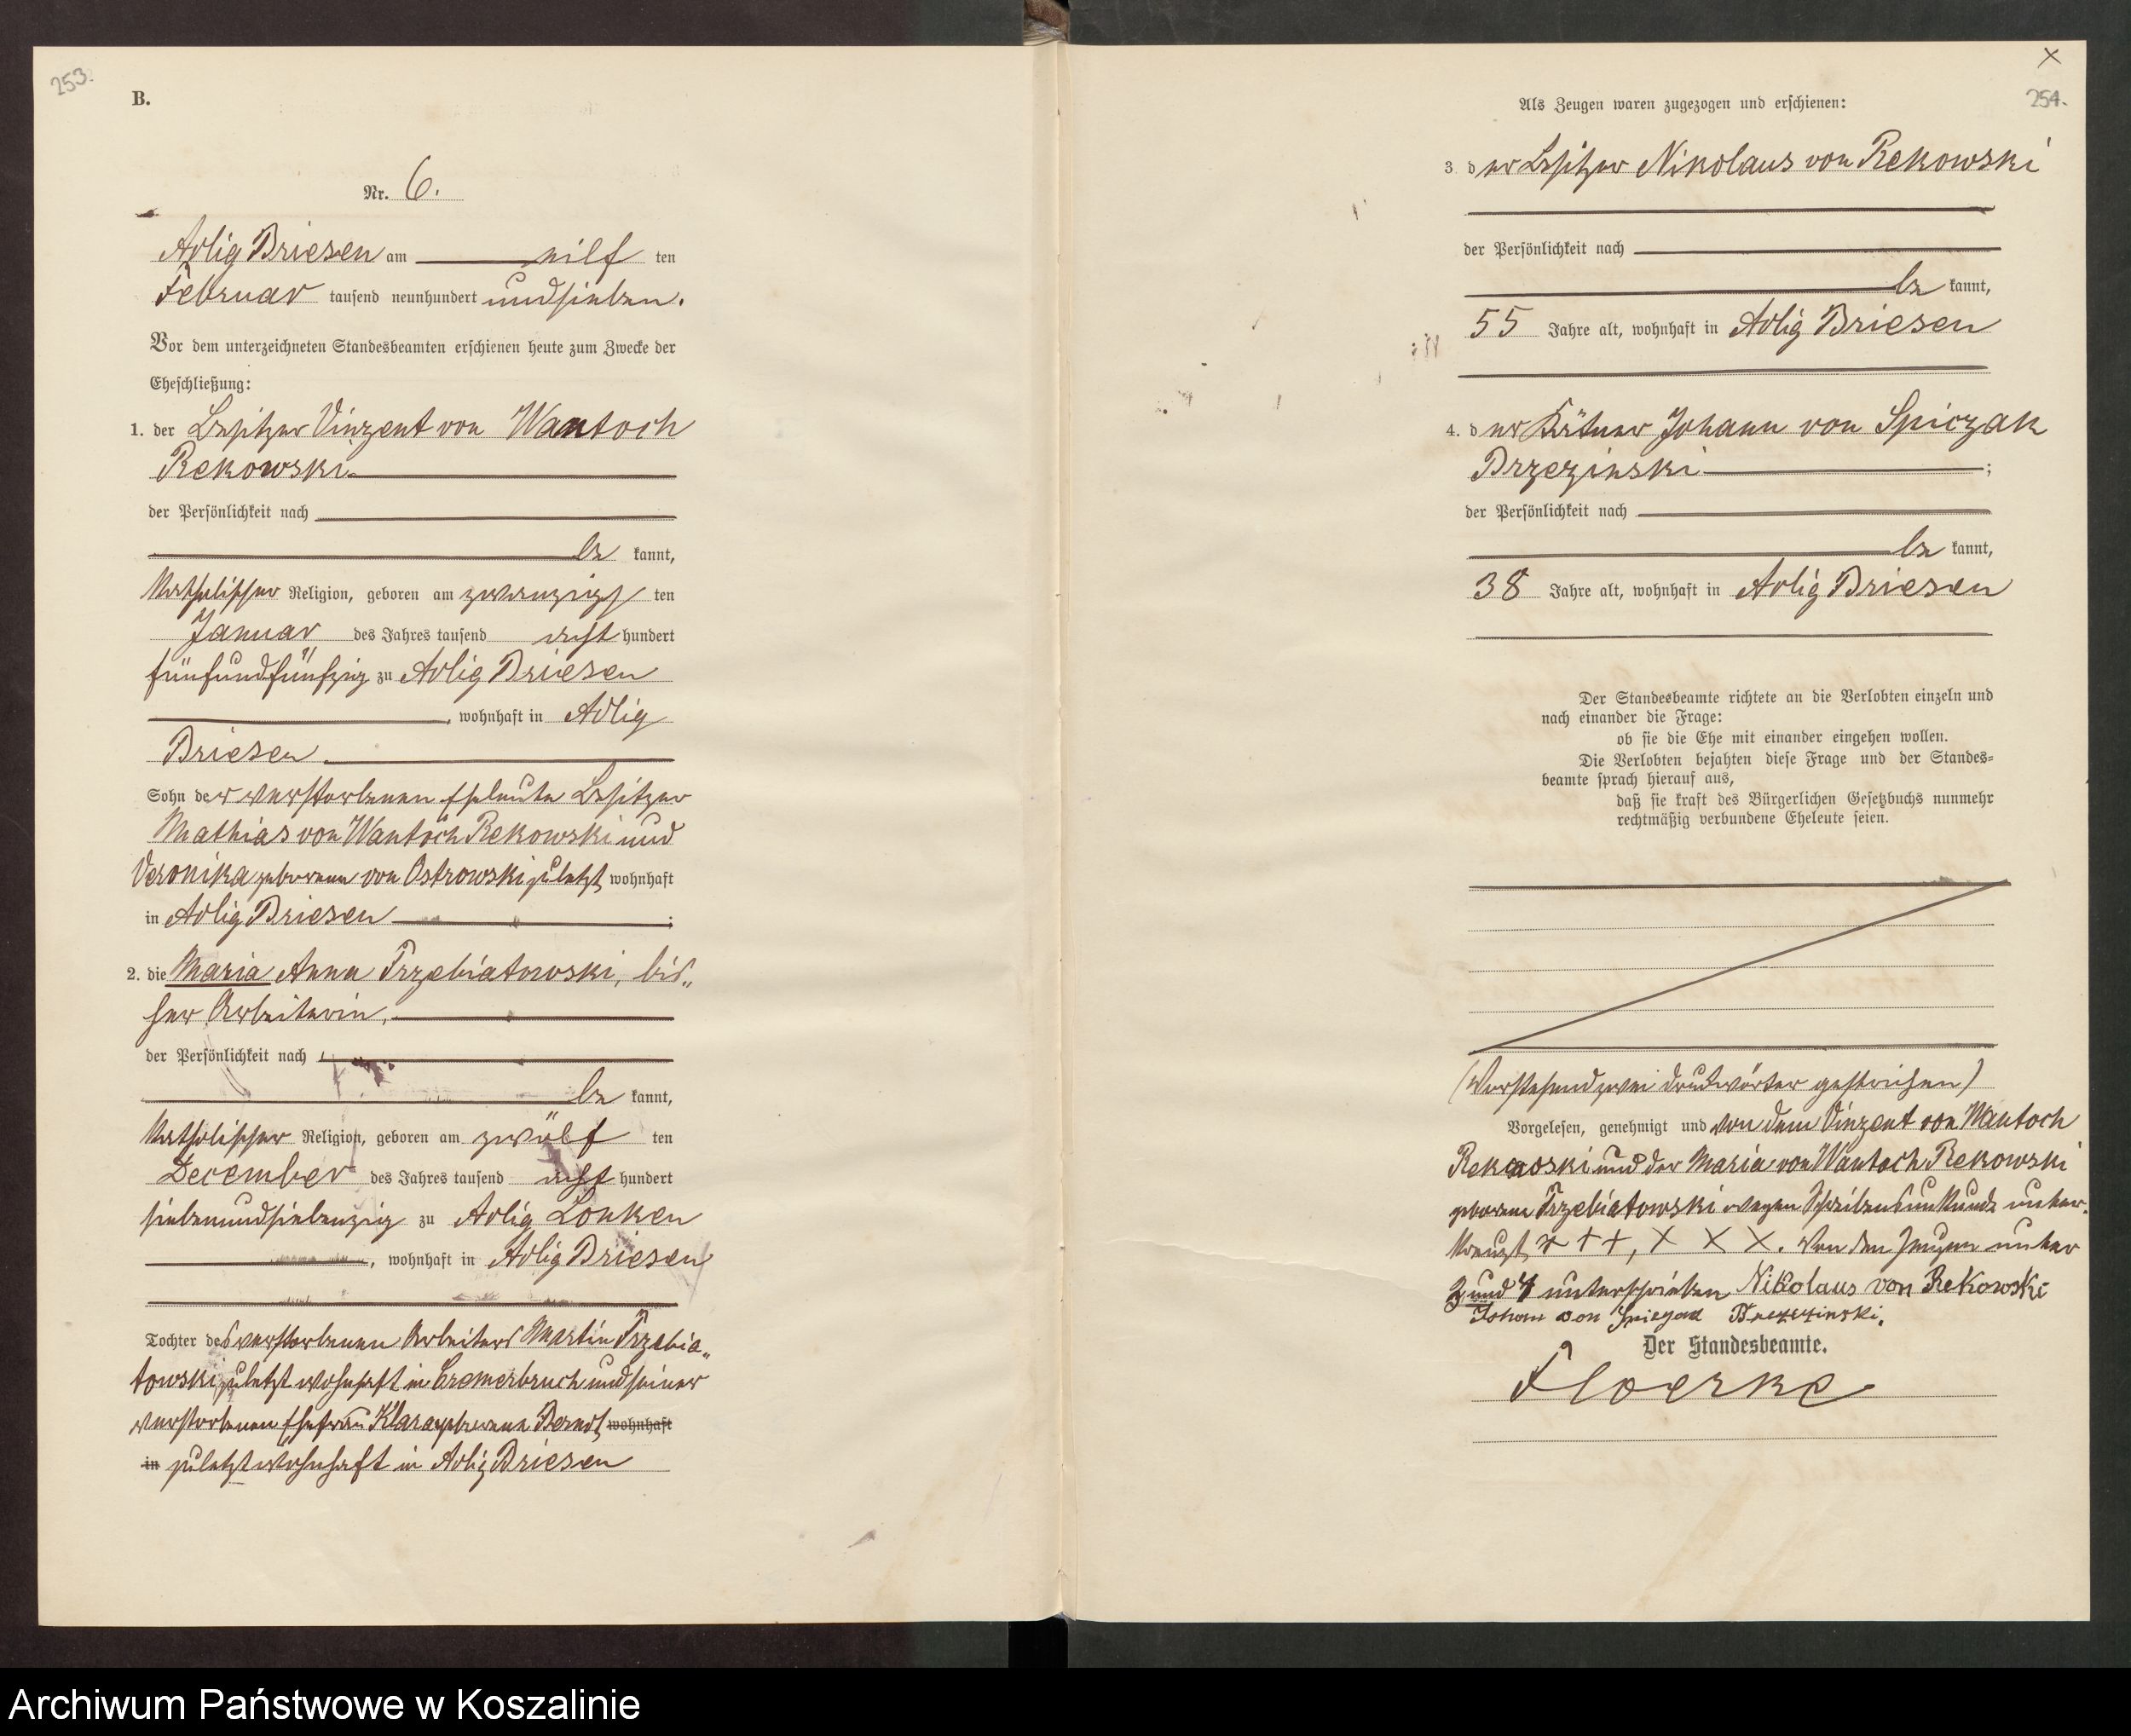 253.
B.
Nr. 6.
Adlig Briesen am eilf ten
Februar tausend neunhundert und sieben.
Vor dem unterzeichneten Standesbeamten erschienen heute zum Zwecke der
Eheschließung:
1. der Besitzer Vinzent von Wantoch
Rekowski
der Persönlichkeit nach
be kannt,
katholischer Religion, geboren am zwanzigs ten
Januar des Jahres tausend acht hundert
fünfundfünfzig zu Adlig Briesen
, wohnhaft in Adlig
Briesen
Sohn der verstorbenen Eheleute Besitzer
Mathias von Wantoch Rekowski und
Veronika geborenen von Ostrowski zuletzt wohnhaft
in Adlig Briesen ;
2. die Maria Anna Trzebiatowski, bis„
her Arbeiterin,
der Persönlichkeit nach
be kannt,
katholischer Religion, geboren am zwölf ten
December des Jahres tausend acht hundert
siebenundsiebenzig zu Adlig Lonken
, wohnhaft in Adlig Briesen
Tochter des verstorbenen Arbeiters Martin Trzebia„
towski zuletzt wohnhaft in Cremerbruch und seiner
verstorbenen Ehefrau Klara geborenen Berndt wohnhaft
in zuletzt wohnhaft in Adlig Briesen
254.
Als Zeugen waren zugezogen und erschienen:
3. der Besitzer Nikolaus von Rekowski
der Persönlichkeit nach
be kannt,
55 Jahre alt, wohnhaft in Adlig Briesen
4. der Kätner Johann von Spiczak
Brzezinski ;
der Persönlichkeit nach
be kannt,
38 Jahre alt, wohnhaft in Adlig Briesen
Der Standesbeamte richtete an die Verlobten einzeln und
nach einander die Frage:
ob sie die Ehe mit einander eingehen wollen.
Die Verlobten bejahten diese Frage und der Standes=
beamte sprach hierauf aus,
daß sie kraft des Bürgerlichen Gesetzbuchs nunmehr
rechtmäßig verbundene Eheleute seien.
(Vorstehend zwei Druckwörter gestrichen)
Vorgelesen, genehmigt und von dem Vinzent von Wantoch
Rekowski und der Maria von Wantoch Rekowski
geborene Trzebiatowski wegen Schreibensunkunde unter=
kreuzt, + + +, X X X. Von den Zeugen unter
3 und 4 unterschrieben Nikolaus von Rekowski
Johan von Brzezinski.
Der Standesbeamte.
Floerke
Archiwum Państwowe w Koszalinie